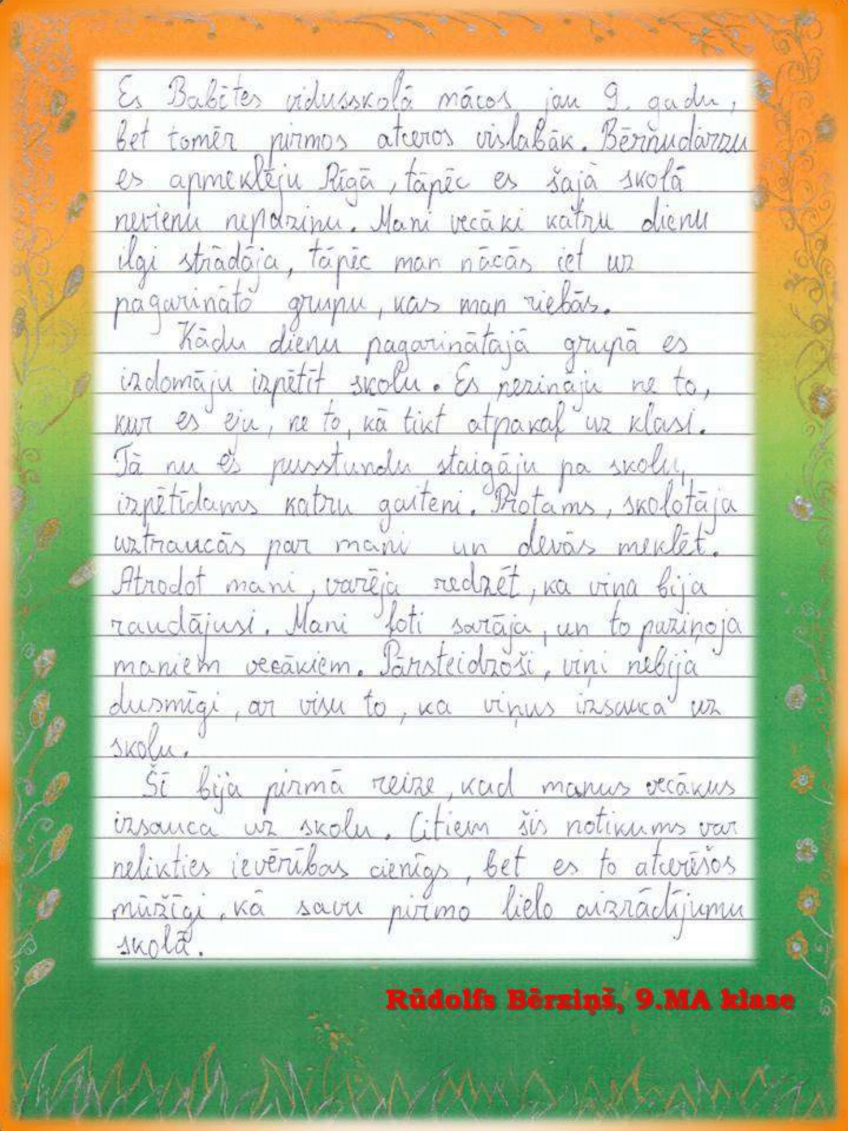 Es Babītes vidusskolā mācos jau 9. gadu,
bet tomēr pirmos atceros vislabāk. Bērnudārzu
es apmeklēju Rīgā, tāpēc es šajā skolā
nevienu nepazinu. Mani vecāki katru dienu
ilgi strādāja, tāpēc man nācās iet uz
pagarināto grupu, kas man riebās.
Kādu dienu pagarinātajā grupā es
izdomāju izpētīt skolu. Es nezināju ne to,
kur es eju, ne to, kā tikt atpakaļ uz klasi.
Tā nu es pusstundu staigāju pa skolu,
izpētīdams katru gaiteni. Protams, skolotāja
uztraucās par mani un devās meklēt.
Atrodot mani, varēja redzēt, ka viņa bija
raudājusi. Mani ļoti sarāja, un to paziņoja
maniem vecākiem. Pārsteidzoši, viņi nebija
dusmīgi, ar visu to, ka viņus izsauca uz
skolu.
Šī bija pirmā reize, kad manus vecākus
izsauca uz skolu. Citiem šis notikums var
nelikties ievērības cienīgs, bet es to atcerēšos
mūžīgi, kā savu pirmo lielo aizrādījumu
skolā.
Rūdolfs Bērziņš, 9.MA klase